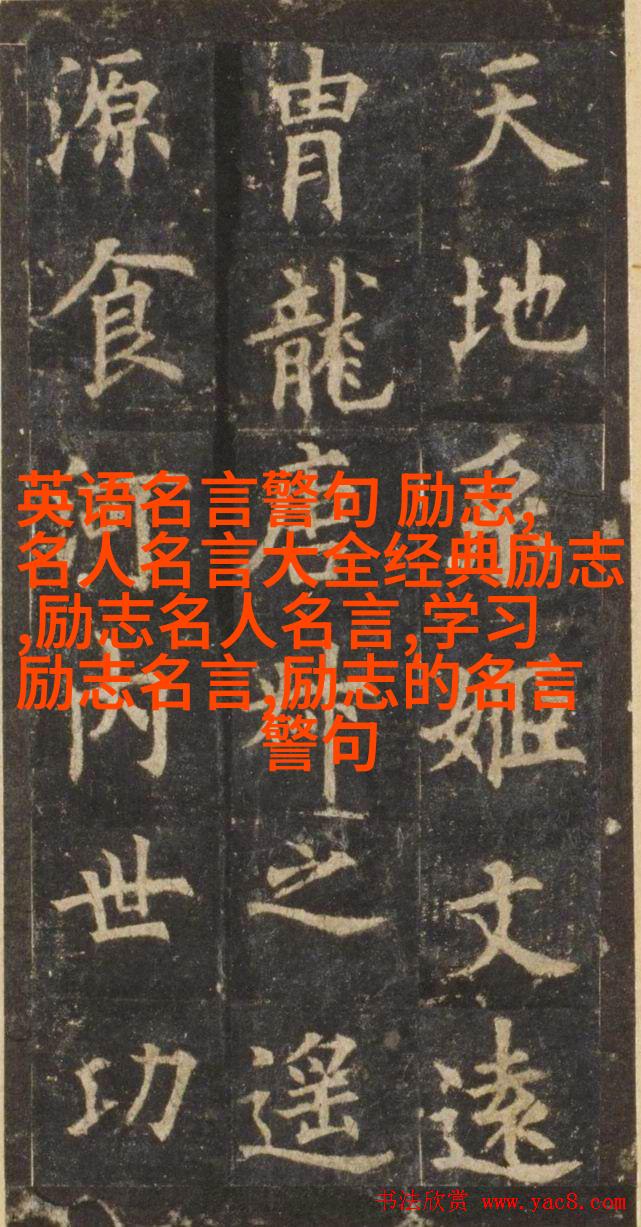 天地系姬文遠
胄龍唐之遥
源食河内世功
英语名言警句 励志,
名人名言大全经典励志
,励志名人名言,学习
励志名言,励志的名言
警句
书法欣赏 www.yac8.com